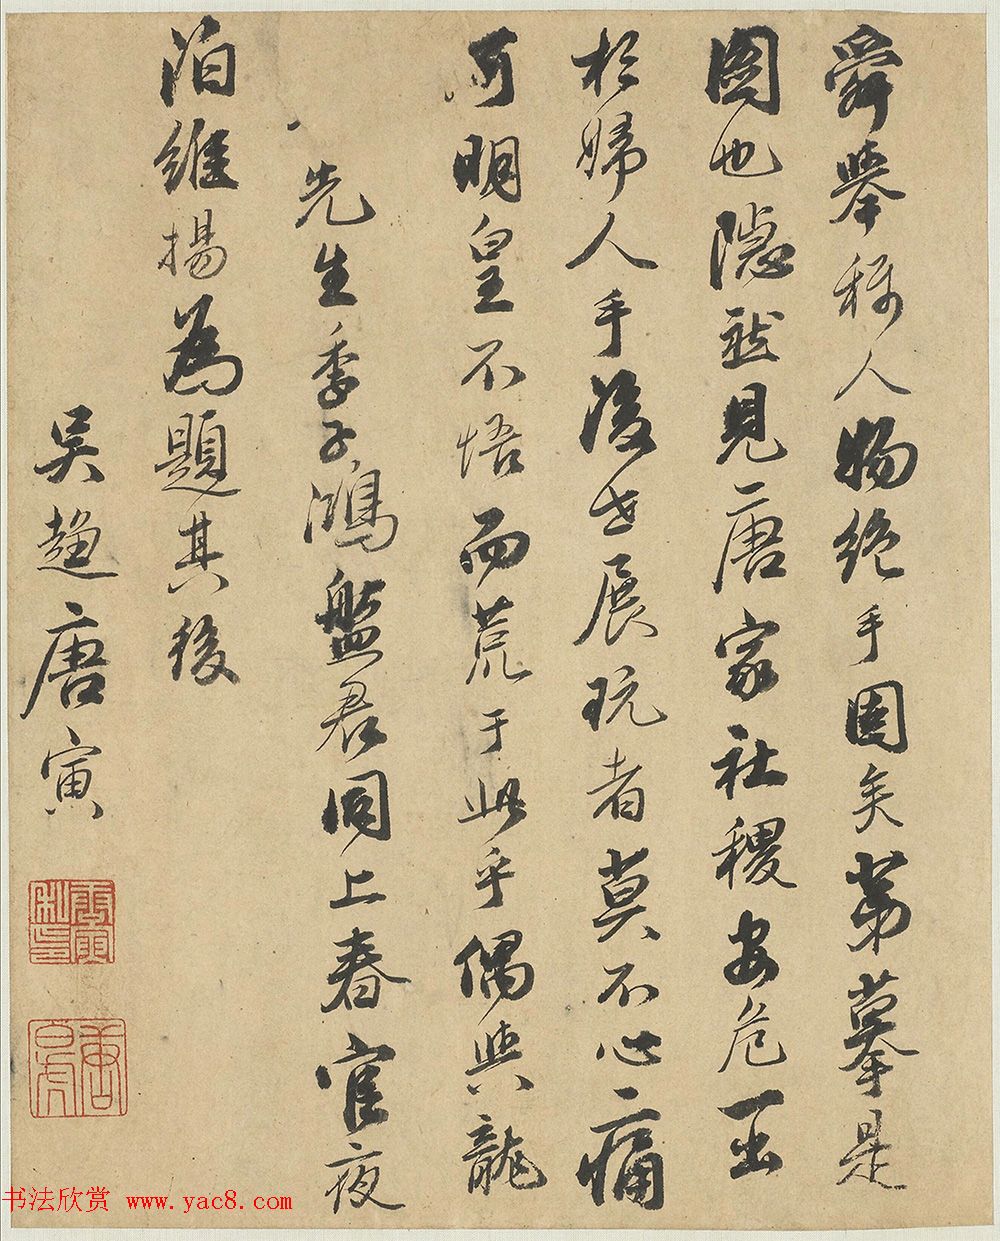 舜舉称人物絶手固矣苐摹是
圖也隠然見唐家社稷安危一出
於婦人手後世展玩者莫不心痛
何明皇不悟而荒于此乎偶與龍
先生季子鴻盤君同上春官夜
泊維揚為題其後
吳趨唐寅
唐寅私印
唐伯虎
书法欣赏 www.yac8.com